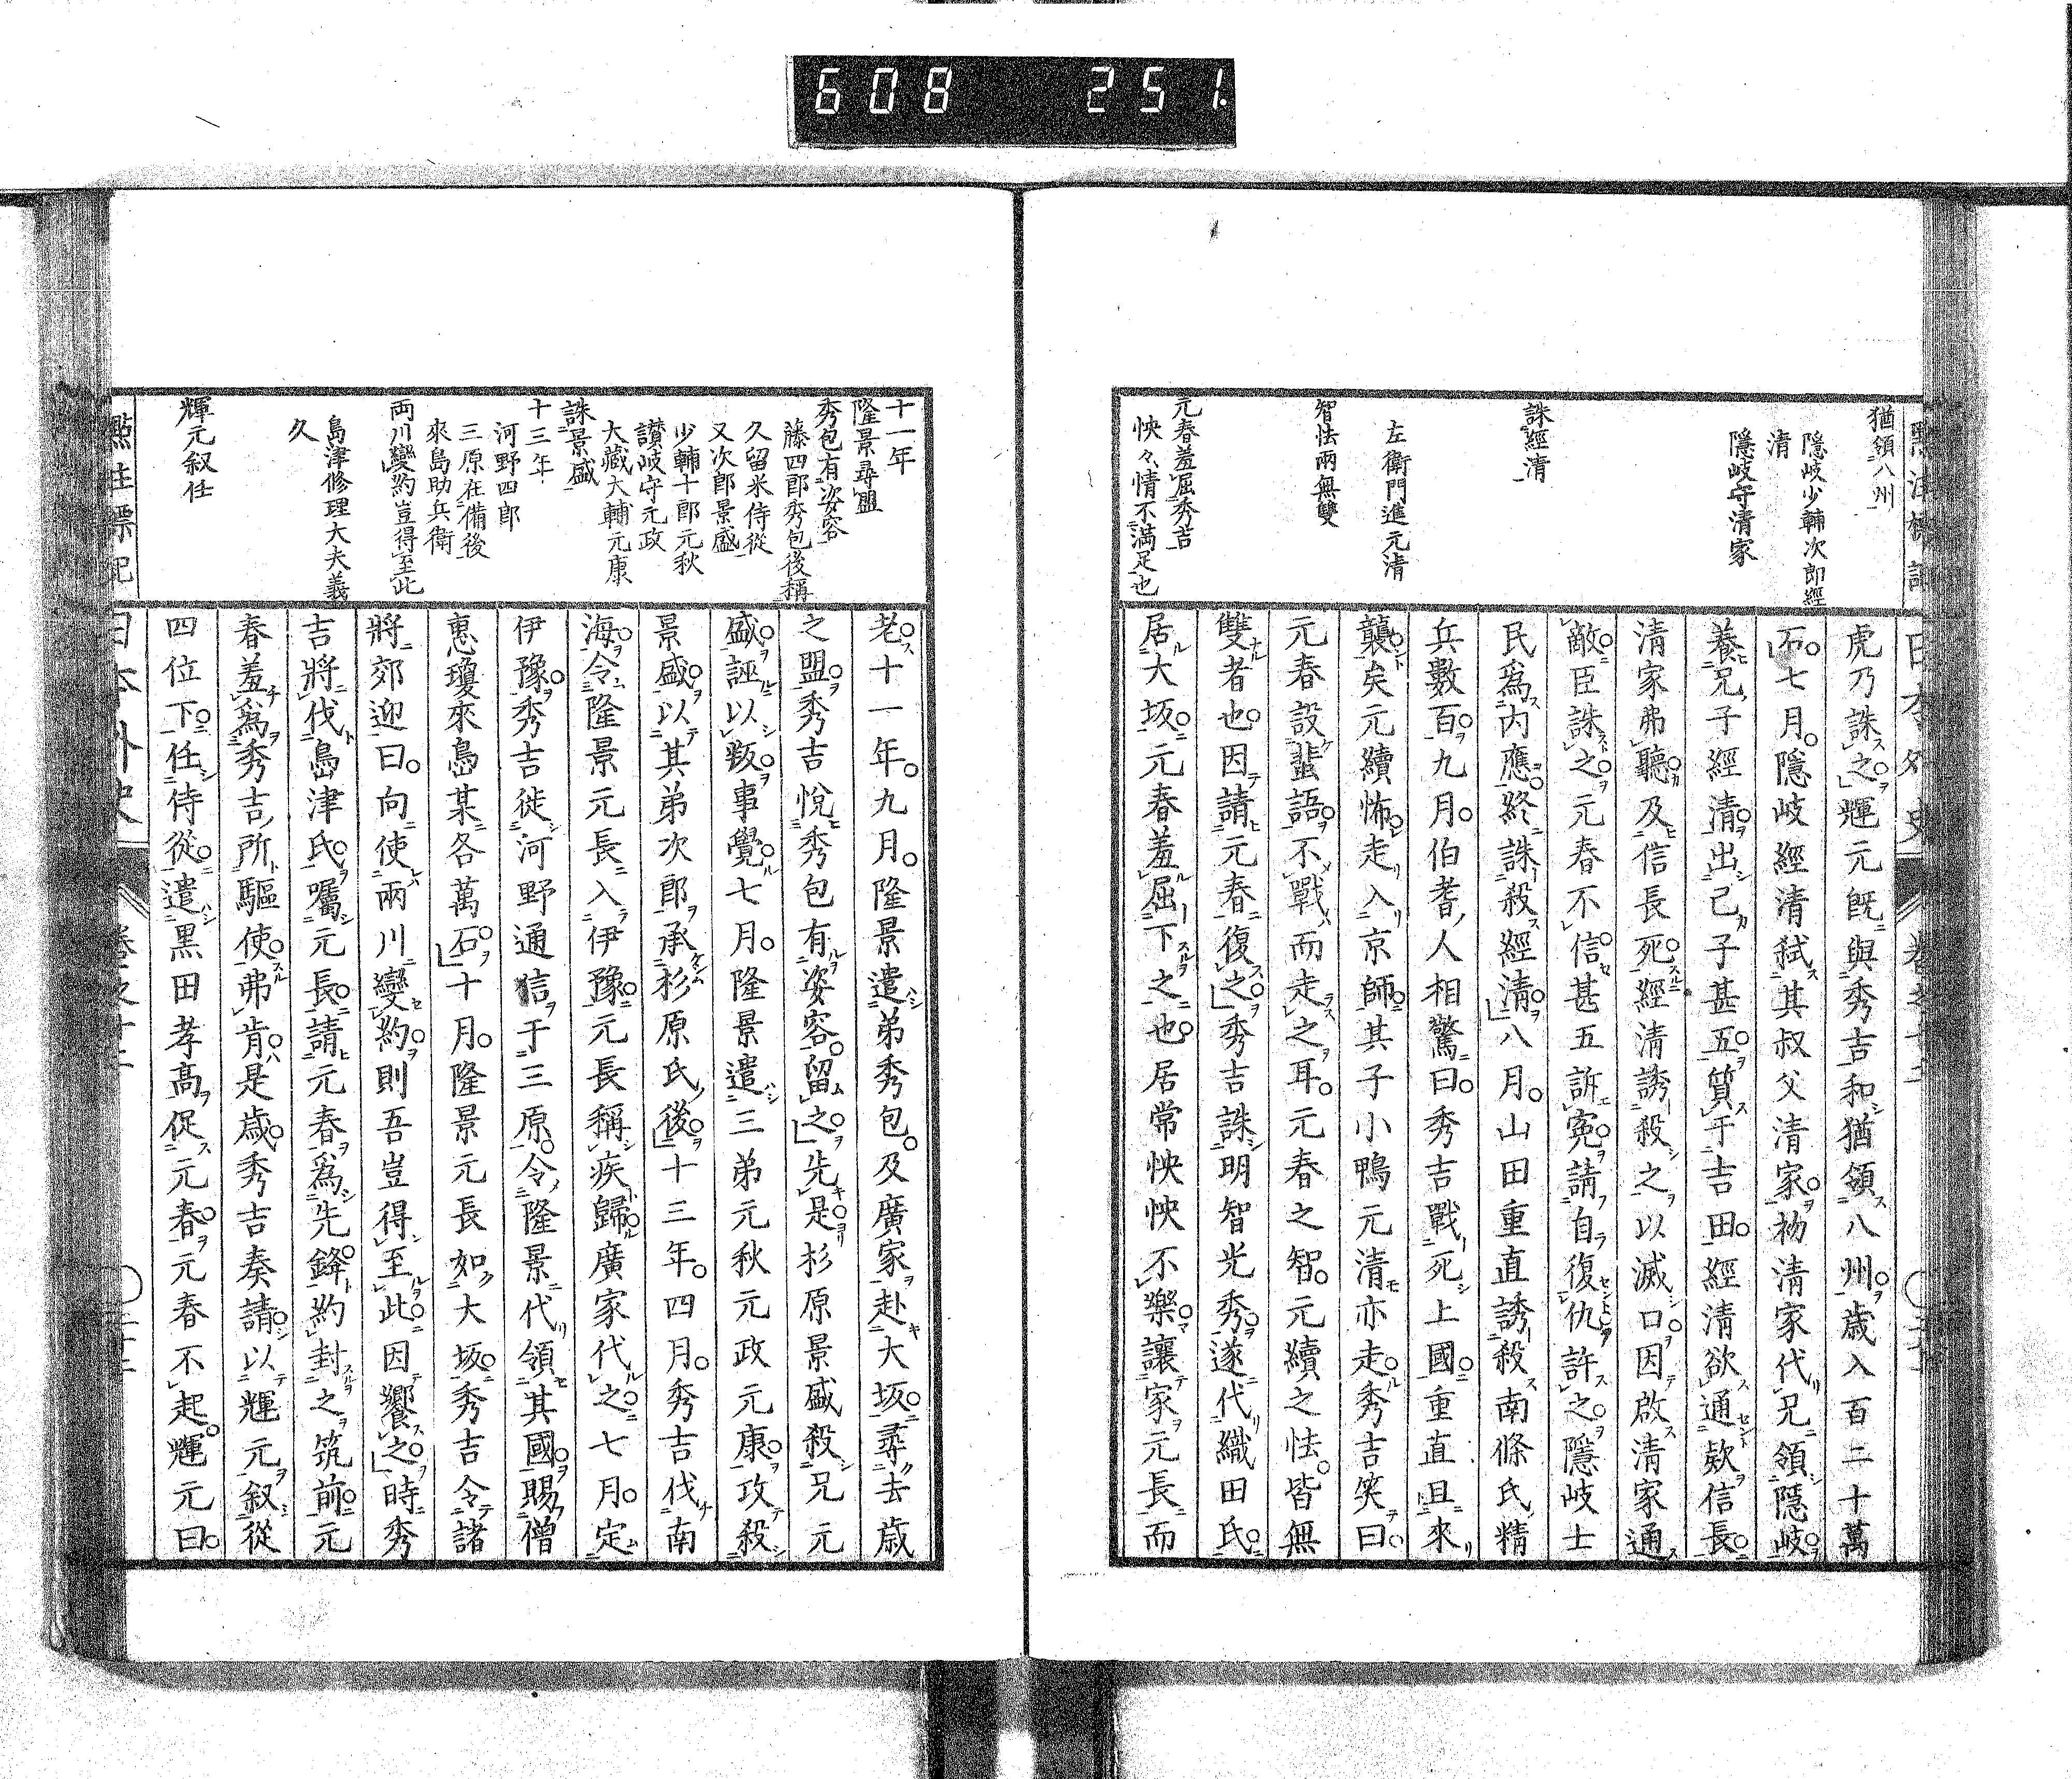 608 251.
猶領八州
隱岐少輔次郎經
清
隱岐守清家
誅經清
左衛門進元清
智怯兩無雙
元春羞屈秀吉
怏々情不滿足也
虎乃誅之輝元既與秀吉和猶領八州歲入百二十萬
石七月隱岐經清弑其叔父清家初清家代兄領隱岐
養兄子經清出己子甚五質于吉田經清欲通欵信長
清家弗聽及信長死經清誘殺之以滅口因啟清家通
敵臣誅之元春不信甚五訴寃請自復仇許之隱岐士
民爲内應終誅殺經清八月山田重直誘殺南條氏精
兵數百九月伯耆人相驚曰秀吉戰死上國重直且來
襲矣元續怖走入京師其子小鴨元清亦走秀吉笑曰
元春設蜚語不戰而走之耳元春之智元續之怯皆無
雙者也因請元春復之秀吉誅明智光秀遂代織田氏
居大坂元春羞屈下之也居常怏怏不樂讓家元長而
十一年
隆景尋盟
秀包有姿容
藤四郎秀包後稱
久留米侍從
又次郎景盛
少輔十郎元秋
讃岐守元政
大藏大輔元康
誅景盛
十三年
河野四郎
三原在備後
來島助兵衛
両川變約豈得至此
島津修理大夫義
久
輝元叙任
老十一年九月隆景遣弟秀包及廣家赴大坂尋去歲
之盟秀吉悅秀包有姿容留之先是杉原景盛殺兄元
盛誣以叛事覺七月隆景遣三弟元秋元政元康攻殺
景盛以其弟次郎承杉原氏後十三年四月秀吉伐南
海令隆景元長入伊豫元長稱疾歸廣家代之七月定
伊豫秀吉徙河野通信于三原令隆景代領其國賜僧
惠瓊來島某各萬石十月隆景元長如大坂秀吉令諸
將郊迎曰向使兩川變約則吾豈得至此因饗之時秀
吉將伐島津氏囑元長請元春爲先鋒約封之筑前元
春羞爲秀吉所驅使弗肯是歲秀吉奏請以輝元叙從
四位下任侍從遣黑田孝高促元春元春不起輝元曰